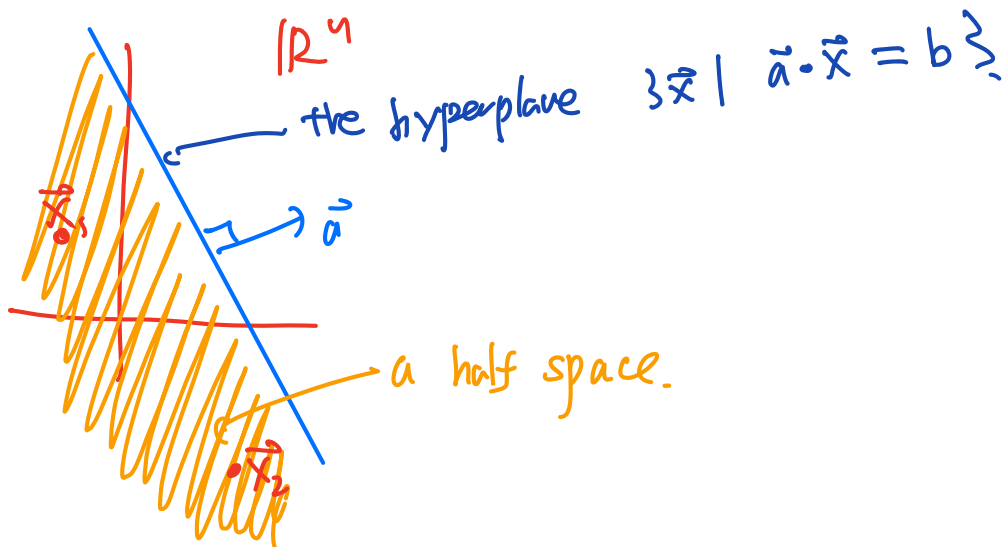 ℝⁿ
the hyperplane { x⃗ | a⃗ · x⃗ = b }
x⃗₁
a⃗
a half space.
x⃗₂